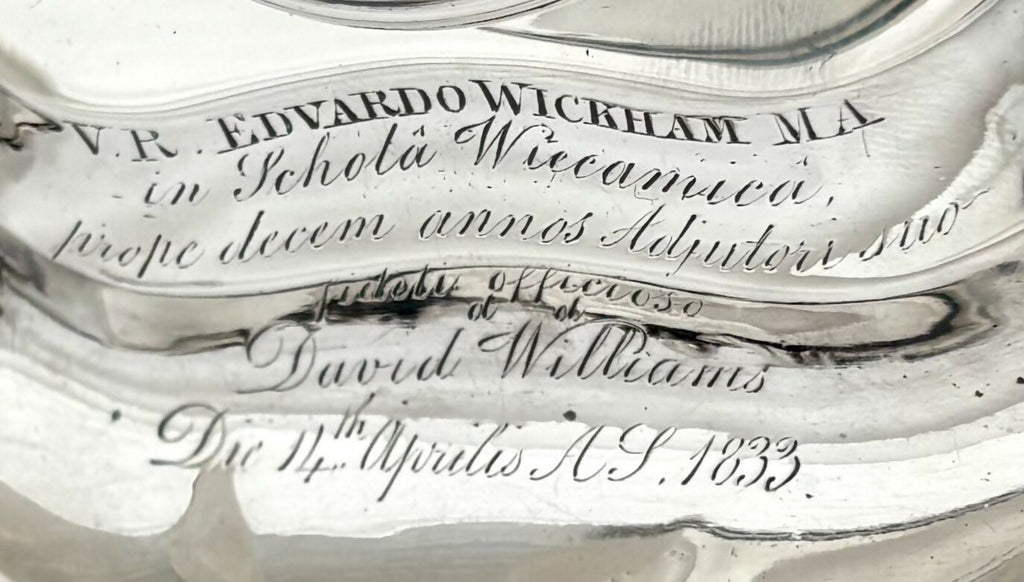 V. R. EDVARDO WICKHAM M A
in Scholâ Wiccamicâ,
prope decem annos Adjutori suo
fideli officioso
d d
David Williams
Die 14th Aprilis A S. 1833